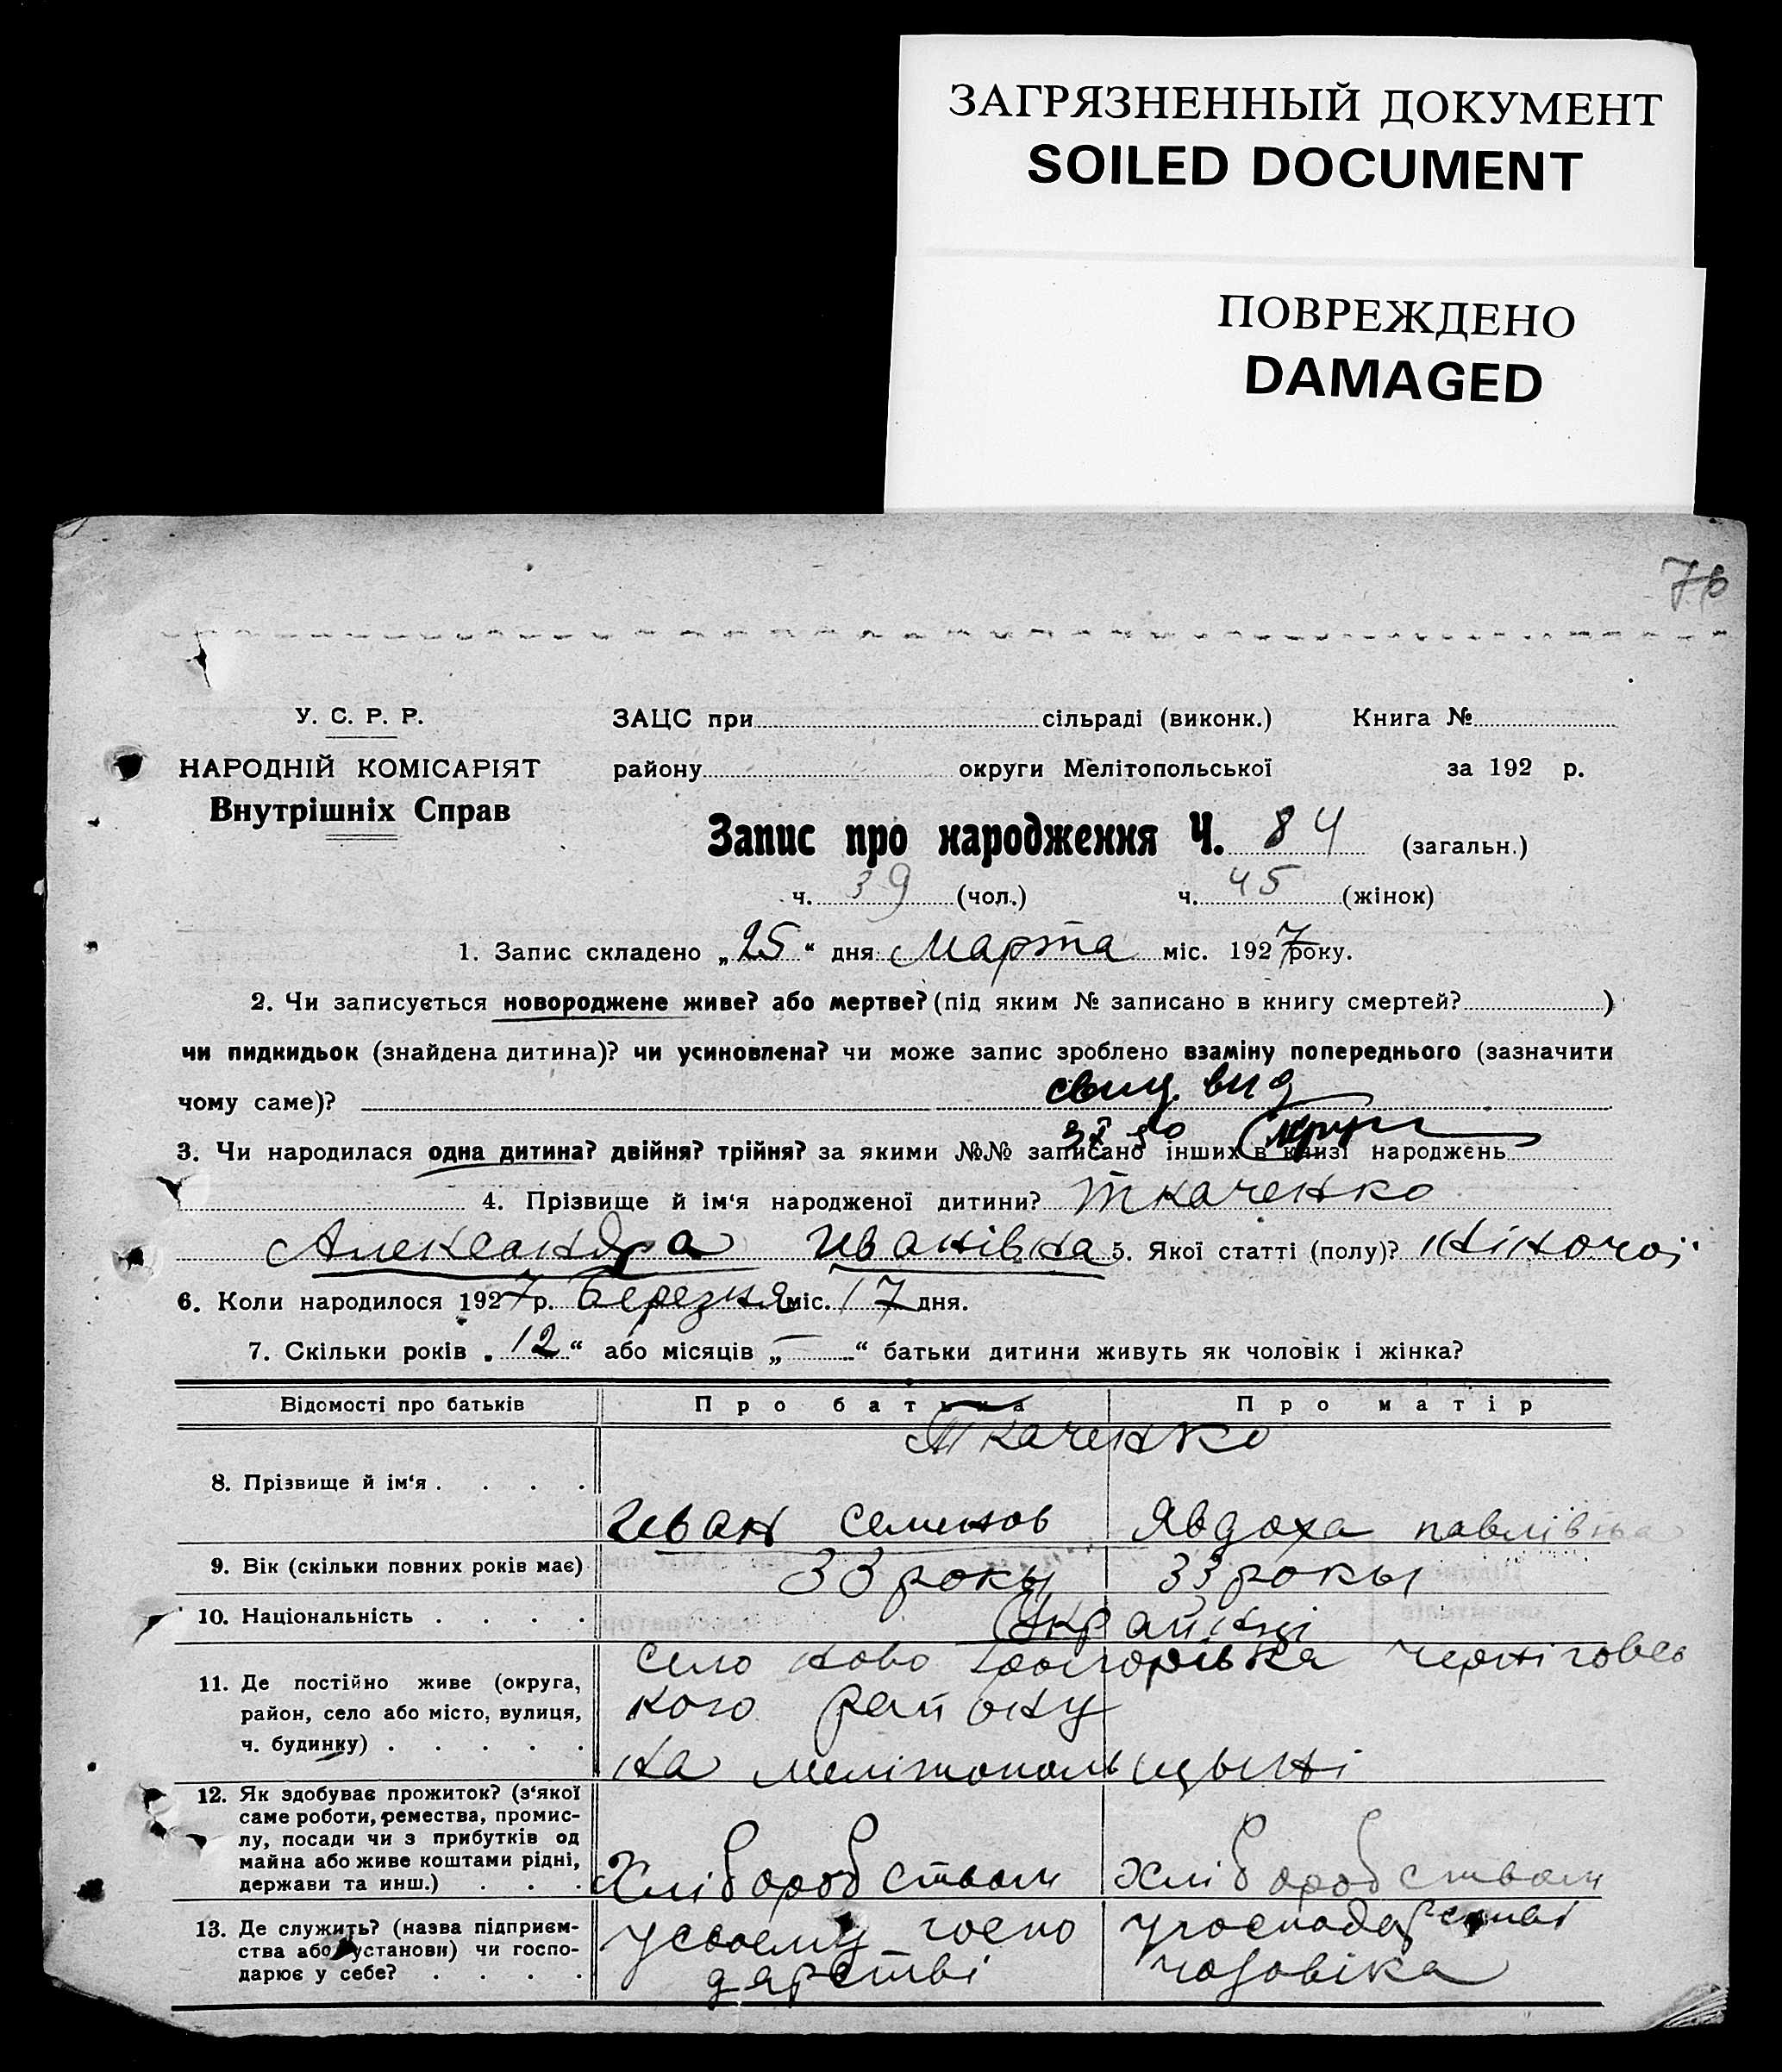 ЗАГРЯЗНЕННЫЙ ДОКУМЕНТ
SOILED DOCUMENT
ПОВРЕЖДЕНО
DAMAGED
У. С. Р. Р.
НАРОДНІЙ КОМІСАРІЯТ
Внутрішніх Справ
ЗАЦС при сільраді (виконк.) Книга №
району округи Мелітопольської за 192 р.
Запис про народження Ч. 84 (загальн.)
ч. 39 (чол.) ч. 45 (жінок)
1. Запис складено „25“ дня Марта міс. 1927 року.
2. Чи записується новороджене живе? або мертве? (під яким № записано в книгу смертей? )
чи пидкидьок (знайдена дитина)? чи усиновлена? чи може запис зроблено взаміну попереднього (зазначити
чому саме)? свид. выд
3. Чи народилася одна дитина? двійня? трійня? за якими №№ записано інших в книзі народжень
4. Прізвище й ім‘я народженої дитини? Ткаченко
Александра Иванівна 5. Якої статті (полу)? жіночої
6. Коли народилося 1927 р. Березня міс. 17 дня.
7. Скільки років „12“ або місяців „—“ батьки дитини живуть як чоловік і жінка?
Відомості про батьків Про батька Про матір
Ткаченко
8. Прізвище й ім‘я . . . . Иван Семенов Явдоха павлівна
9. Вік (скільки повних років має) 33 рокы 33 рокы
10. Національність . . . . Украйнці
11. Де постійно живе (округа,
район, село або місто, вулиця,
ч. будинку) . . . . .
село ново Черніговсь
кого району
на мелітопольщыні
12. Як здобуває прожиток? (з‘якої
саме роботи, ремества, промис-
лу, посади чи з прибутків од
майна або живе коштами рідні,
держави та инш.) . . .
Хліборобством хліборобством
13. Де служить? (назва підприєм-
ства або установи) чи госпо-
дарює у себе? . . . .
у своему госпо
дарстві
у господарстві
чоловіка